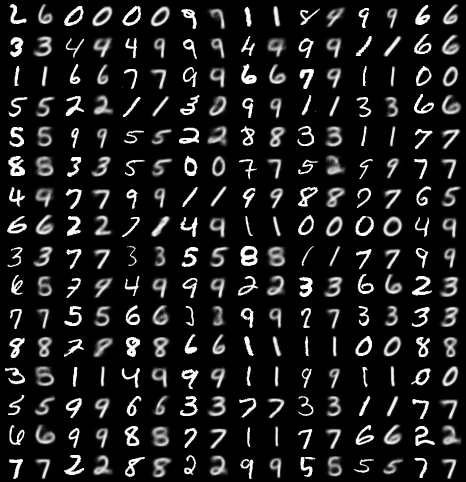 2 6 0 0 0 0 9 9 1 1 8 9 9 9 6 6
3 3 4 9 4 9 9 9 4 9 9 9 1 1 6 6
1 1 6 6 7 7 9 9 6 6 7 9 1 1 0 0
5 5 2 2 1 1 3 0 9 9 1 1 3 3 6 6
5 5 9 9 5 5 2 2 8 8 3 3 1 1 7 7
8 8 3 3 5 5 0 0 7 7 5 2 9 9 7 7
4 9 7 7 9 9 1 1 9 9 8 8 7 7 6 5
6 6 2 2 7 1 4 9 1 1 0 0 0 0 4 9
3 3 7 7 3 3 5 5 8 8 1 1 7 7 9 9
6 5 7 9 4 9 9 9 2 2 3 3 6 6 2 3
7 7 5 5 6 6 3 3 9 9 7 7 3 3 3 3
8 8 2 9 8 8 6 6 1 1 1 1 0 0 8 8
3 5 1 1 4 9 9 9 1 1 9 9 1 1 0 0
5 5 9 9 6 6 3 3 7 7 3 3 1 1 7 7
6 6 9 9 8 8 7 7 1 1 7 7 6 6 2 2
7 7 2 2 8 8 2 2 9 9 5 5 5 5 7 7